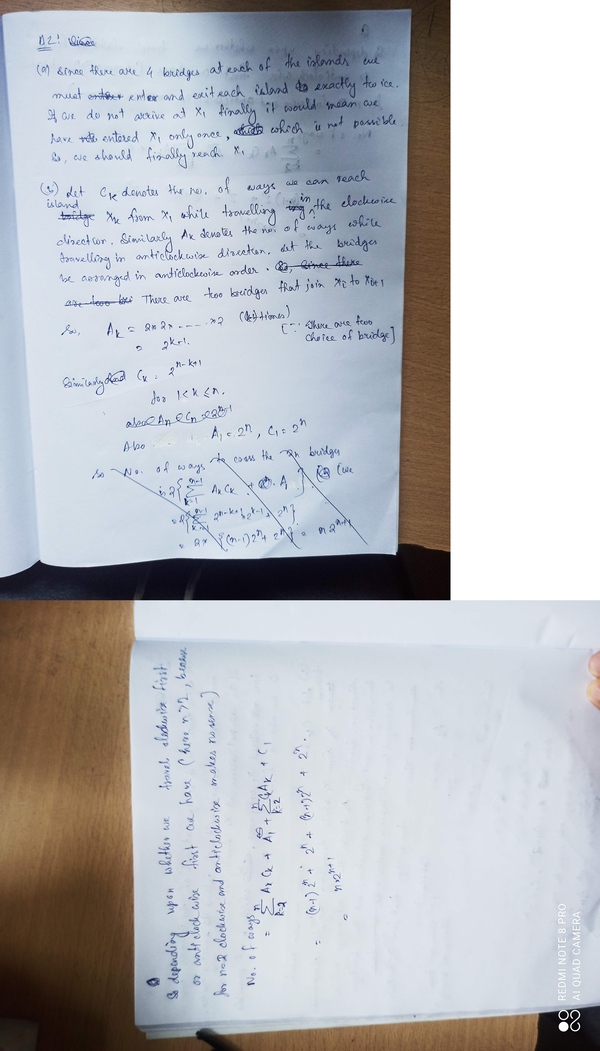 B2:
(a) Since there are 4 bridges at each of the islands we
must enter and exit each island exactly twice.
If we do not arrive at x1 finally it would mean we
have entered x1 only once, which is not possible
So, we should finally reach x1
(b) Let CK denotes the no. of ways we can reach
island
bridge XK from x1 while travelling in the clockwise
direction. Similarly AK denotes the no. of ways while
travelling in anticlockwise direction. Let the bridges
be arranged in anticlockwise order. So, since there
are two bri There are two bridges that join xi to xi+1
So, AK = 2×2×.....×2 (k-1)times)
= 2^k-1. [∵ there are two
choice of bridge]
Similarly CK = 2^n-k+1
for 1<k≤n.
Also A1 = 2^n, C1 = 2^n
So No. of ways to cross the 2n bridges
is 2{Σ AK CK + A } (we
= 2{Σ 2^n-k+1 × 2^k-1 + 2^n}
= 2× {(n-1)2^n + 2^n} = n 2^n+1
So depending upon whether we travel clockwise first
or anticlockwise first we have (here n>2, because
for n=2 clockwise and anticlockwise makes no sense)
No. of ways
= Σ AK CK + A1 + Σ CK AK + C1
= (n-1)2^n + 2^n + (n-1)2^n + 2^n.
= n×2^n+1
REDMI NOTE 8 PRO
AI QUAD CAMERA